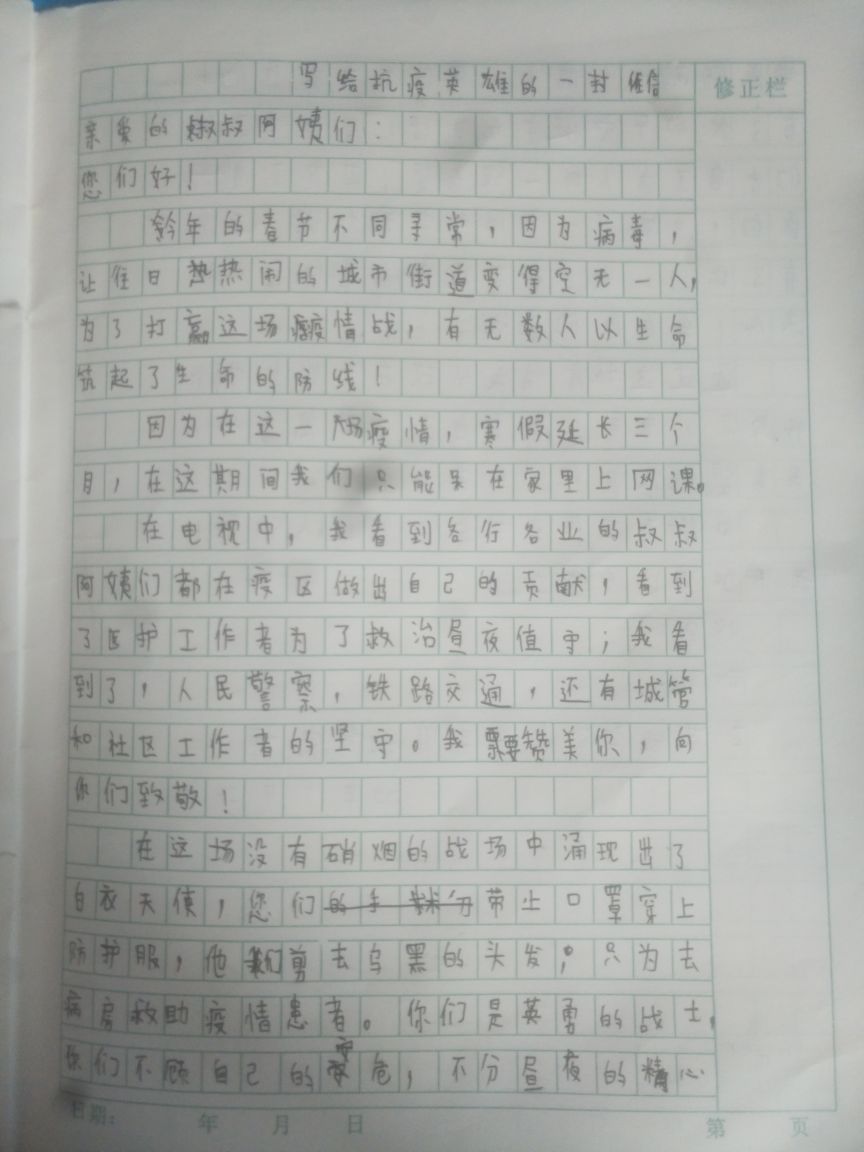 写给抗疫英雄的一封信
修正栏
亲爱的叔叔阿姨们：
您们好！
今年的春节不同寻常，因为病毒，
让往日热闹的城市街道变得空无一人，
为了打赢这场疫情战，有无数人以生命
筑起了生命的防线！
因为在这一场疫情，寒假延长三个
月，在这期间我们只能呆在家里上网课。
在电视中，我看到各行各业的叔叔
阿姨们都在疫区做出自己的贡献，看到
了医护工作者为了救治昼夜值守；我看
到了，人民警察，铁路交通，还有城管
和社区工作者的坚守。我要赞美你，向
你们致敬！
在这场没有硝烟的战场中涌现出了
白衣天使，您们带上口罩穿上
防护服，他们剪去乌黑的头发；只为去
病房救助疫情患者。你们是英勇的战士，
你们不顾自己的安危，不分昼夜的精心
日期： 年 月 日 第 页